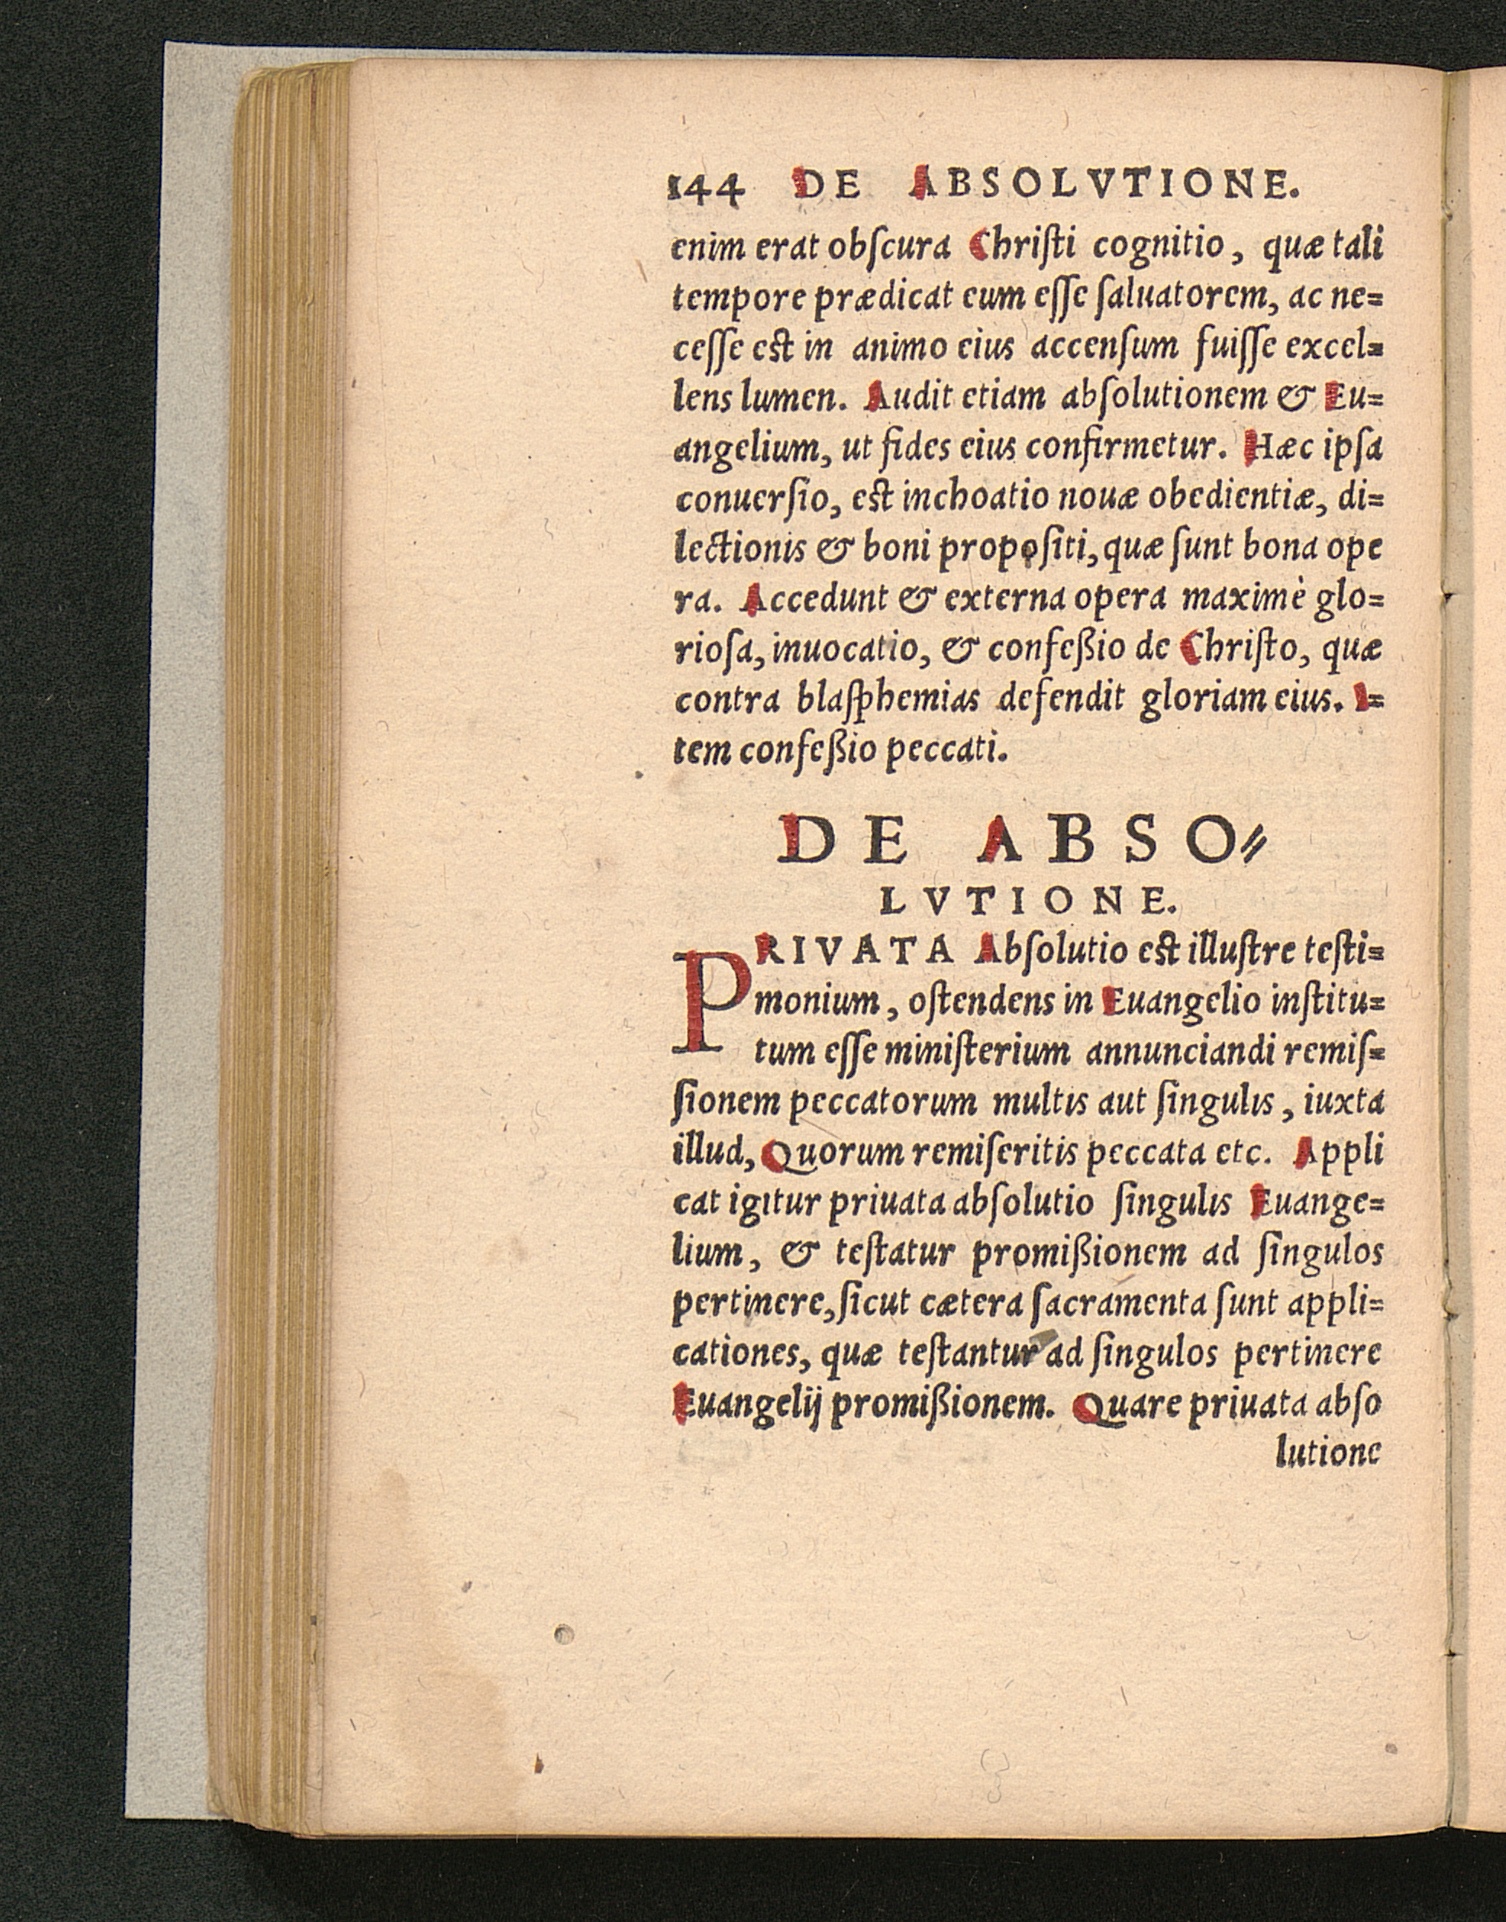 144 DE ABSOLVTIONE.
enim erat obſcura Chriſti cognitio, quæ tali
tempore prædicat eum eſſe ſaluatorem, ac ne=
ceſſe est in animo eius accenſum fuiſſe excel=
lens lumen. Audit etiam abſolutionem & Eu=
angelium, ut fides eius confirmetur. Hæc ipſa
conuerſio, est inchoatio nouæ obedientiæ, di=
lectionis & boni propoſiti, quæ ſunt bona ope
ra. Accedunt & externa opera maximè glo=
rioſa, inuocatio, & confeßio de Chriſto, quæ
contra blaſphemias defendit gloriam eius. I=
tem confeßio peccati.
DE ABSO=
LVTIONE.
PRIVATA Abſolutio est illuſtre teſti=
monium, oſtendens in Euangelio inſtitu=
tum eſſe miniſterium annunciandi remiſ=
ſionem peccatorum multis aut ſingulis, iuxta
illud, Quorum remiſeritis peccata etc. Appli
cat igitur priuata abſolutio ſingulis Euange=
lium, & teſtatur promißionem ad ſingulos
pertinere, ſicut cætera ſacramenta ſunt appli=
cationes, quæ teſtantur ad ſingulos pertinere
Euangelij promißionem. Quare priuata abſo
lutione